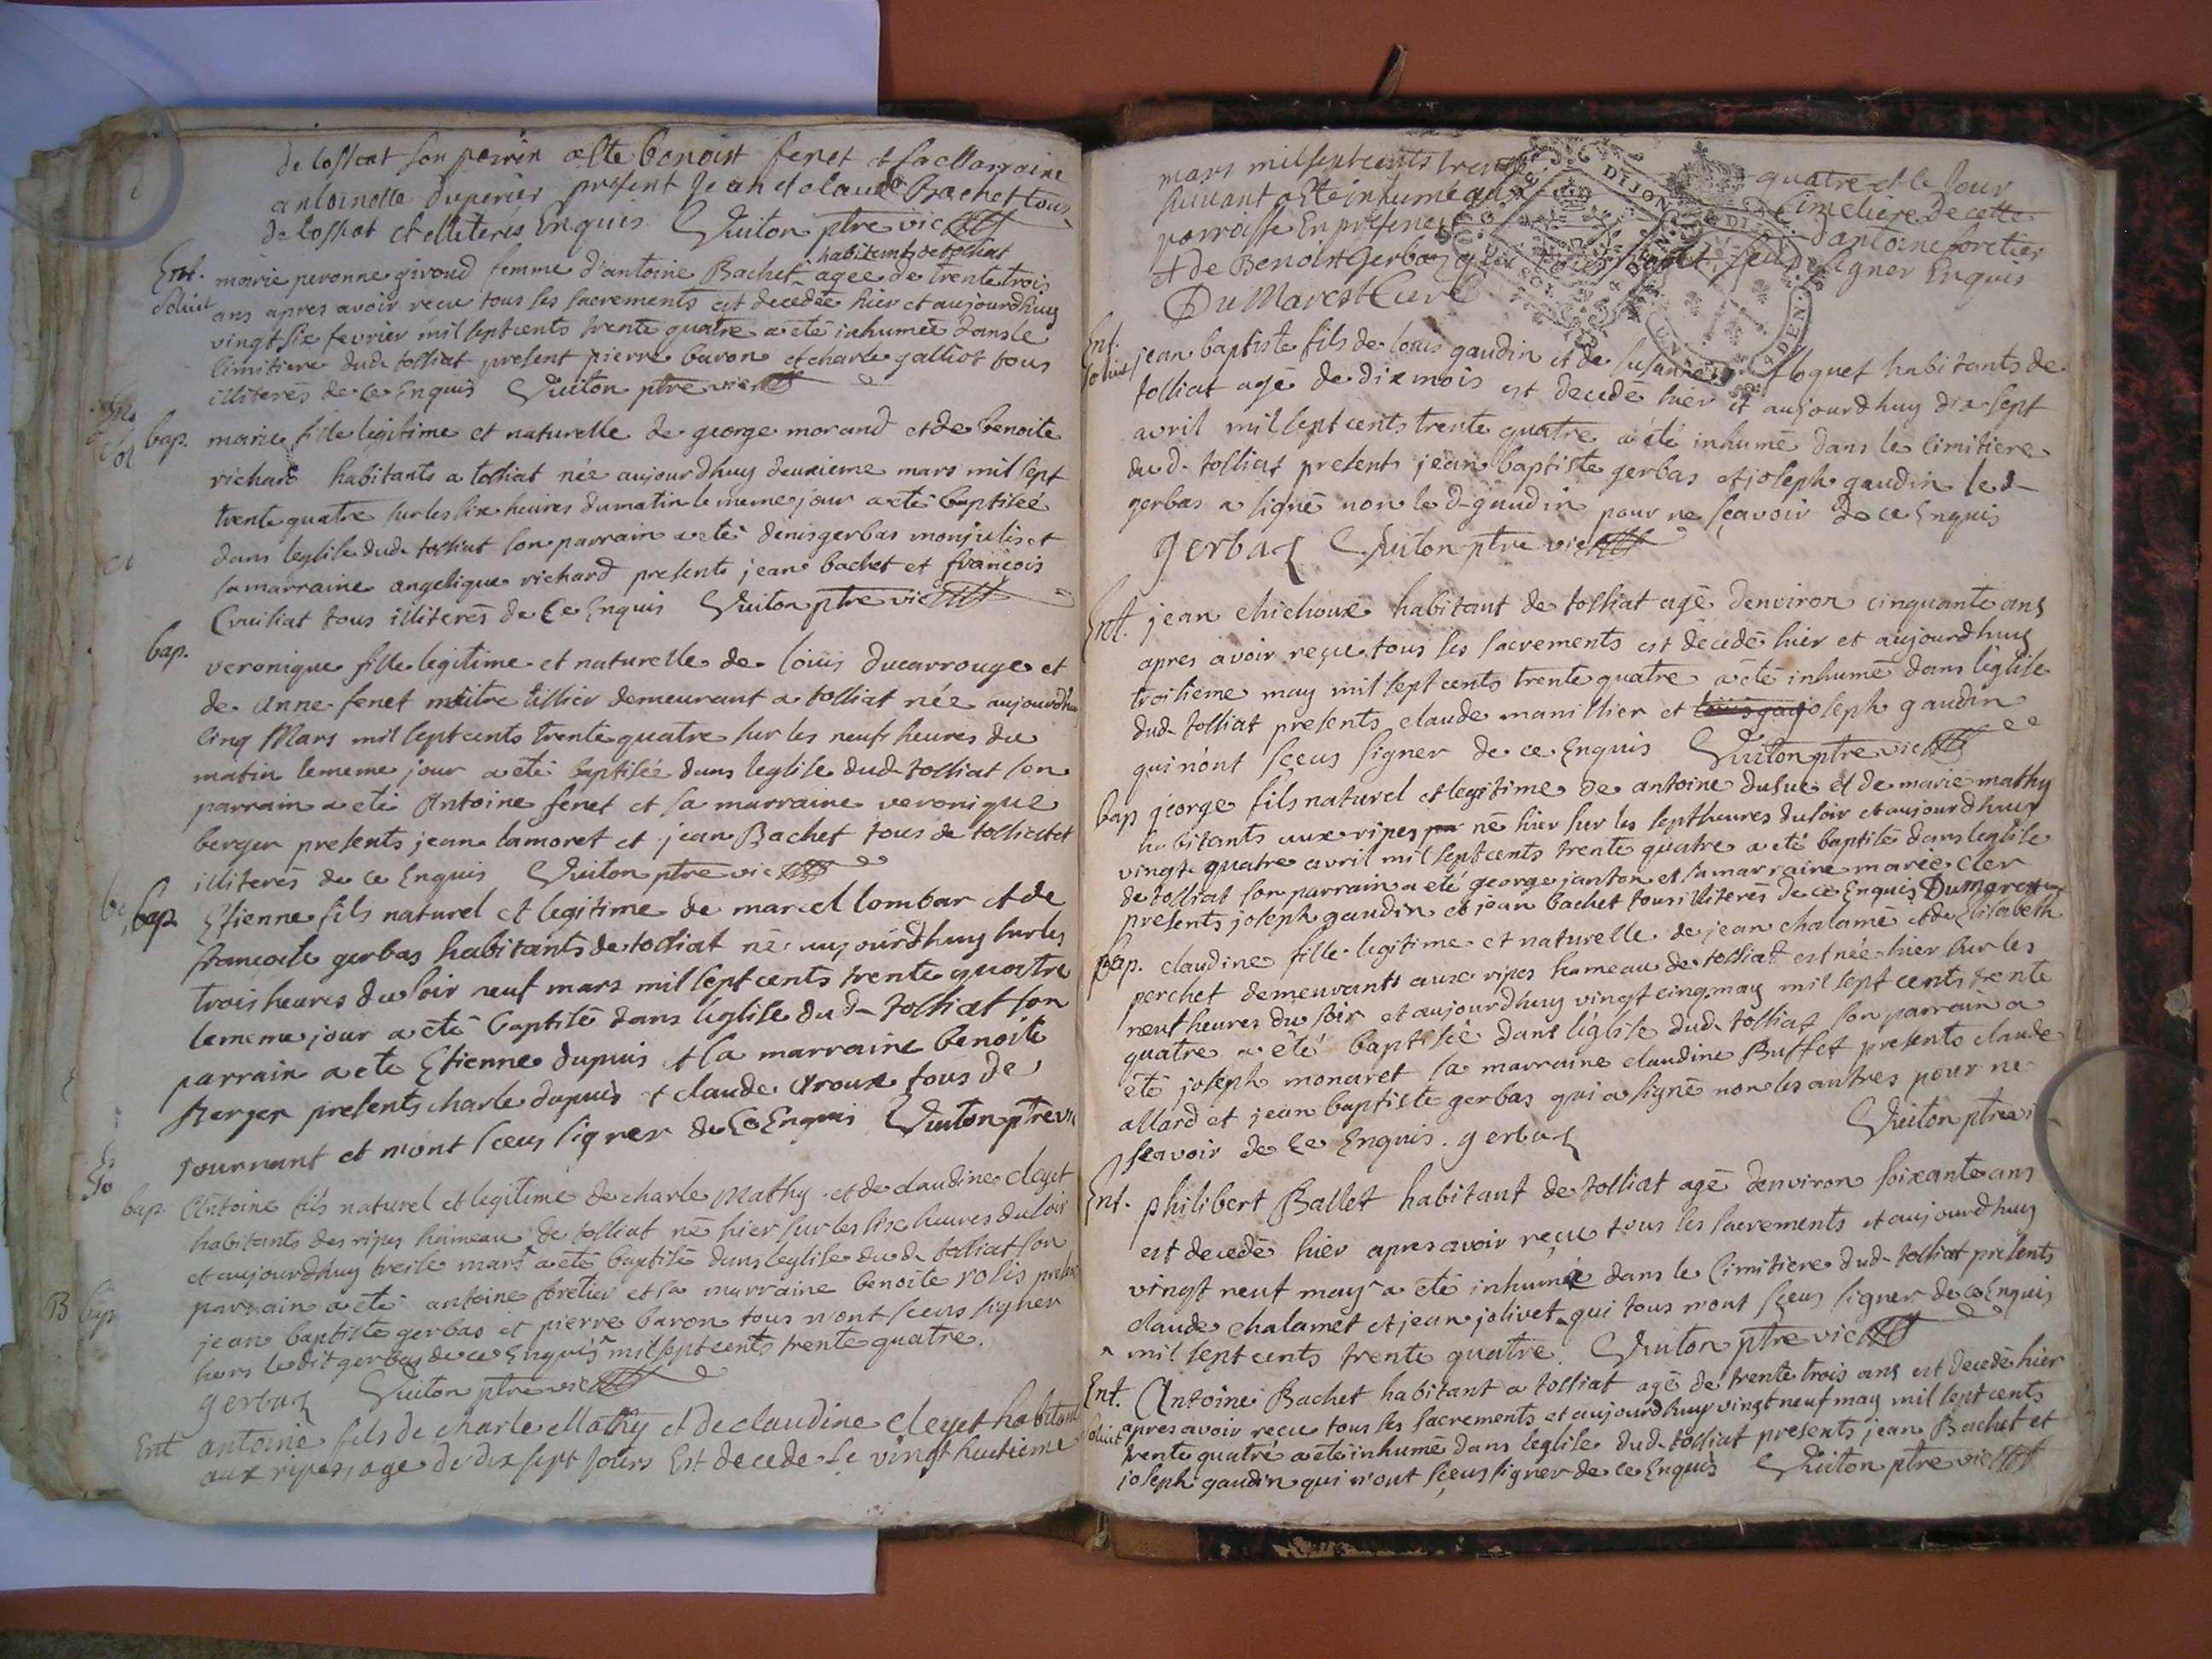 de tossiat son parrin a ete benoist fenet et sa Marraine
antoinette duperier present Jean et claude Bachet tous
de tossiat et illiterés Enquis Guiton ptre vic
habitants de tossiat
Ent. marie peronne giroud femme d'antoine Bachet agee de trente trois
ans apres avoir recu tous les sacrements est decedée hier et aujourdhuy
vingt six fevrier mil sept cents trente quatre a été inhumée dans le
cimitiere dud. tossiat present pierre baron et charle galliot tous
illiterés de ce Enquis Guiton ptre vic
bap. marie fille legitime et naturelle de george morand et de benoite
richard habitants a tossiat née aujourdhuy deuxieme mars mil sept
trente quatre sur les six heures du matin le meme jour a eté baptisée
dans leglise dud. tossiat son parrain a eté denis gerbas monjulis et
sa marraine angelique richard presents jean bachet et francois
Cruiliat tous illiterés de Ce Enquis Guiton ptre vic
bap. veronique fille legitime et naturelle de louis ducarrouge et
de anne fenet maitre tillier demeurant a tossiat née aujourdhuy
cinq Mars mil sept cents trente quatre sur les neufs heures du
matin le meme jour a eté baptisée dans leglise dud. tossiat son
parrain a eté Antoine fenet et sa marraine veronique
berger presents jean lamoret et jean Bachet tous de tossiat et
illiterés de ce Enquis Guiton ptre vic
bap. Etienne fils naturel et legitime de marcel lombar et de
francoise gerbas habitants de tossiat né aujourdhuy sur les
trois heures du soir neuf mars mil sept cents trente quatre
le meme jour a été baptisé dans leglise dud. tossiat son
parrain a ete Etienne dupuis et la marraine benoite
Berger presents charle dupuis et claude aroux tous de
journant et n'ont sceus signer de Ce Enquis Guiton ptre vic
bap. Antoine fils naturel et legitime de charle Mathy et de claudine cleyet
habitants des ripes hameau de tossiat né hier sur les six heures du soir
et aujourdhuy treise mars a eté baptisé dans leglise dud. tossiat son
parrain a eté antoine foretier et sa marraine benoite rolis presents
jean baptiste gerbas et pierre baron tous n'ont sceus signer
hors le dit gerbas de ce Enquis mil sept cents trente quatre.
gerbaz Guiton ptre vic
Ent antoine fils de charle Mathy et de claudine cleyet habitants
aux ripes, age de dix sept jours Est decede le vingt huitieme
mars mil sept cents trente quatre et le Jour
suivant a ete inhumé au Cimetiere de cette
parroisse En presence d'antoine foretier
et de Benoist Gerbaz signer Enquis
Du Marest Curé
Ent. jean baptiste fils de louis gaudin et de susanne floquet habitants de
tossiat agé de dix mois est decedé hier et aujourdhuy dix sept
avril mil sept cents trente quatre a été inhumé dans le cimitiere
dud. tossiat presents jean baptiste gerbas et joseph gaudin led.
gerbas a signé non le d. gaudin pour ne sçavoir de ce Enquis
gerbaz Guiton ptre vic
Ent. jean chichoux habitant de tossiat agé denviron cinquante ans
apres avoir reçu tous les sacrements est decedé hier et aujourdhuy
troisieme may mil sept cents trente quatre a été inhumé dans leglise
dud. tossiat presents claude manillier et joseph gaudin
qui n'ont sçeus signer de ce Enquis Guiton ptre vic
bap george fils naturel et legitime de antoine dufue et de marie mathy
habitants aux ripes né hier sur les sept heures du soir et aujourdhuy
vingt quatre avril mil sept cents trente quatre a été baptisé dans leglise
de tossiat son parrain a eté george janton et sa marraine marie cler
presents joseph gaudin et jean bachet tous illiterés de ce Enquis Dumarest
bap. claudine fille legitime et naturelle de jean chalamé et de Elisabeth
perchet demeurants aux ripes hameau de tossiat est née hier sur les
neuf heures du soir et aujourdhuy vingt cinq may mil sept cents trente
quatre a eté baptisée dans léglise dud. tossiat son parrain a
été joseph monaret la marraine claudine Buffet presents claude
allard et jean baptiste gerbas qui a signé non les autres pour ne
sçavoir de Ce Enquis. gerbaz Guiton ptre vi
Ent. philibert Ballet habitant de tossiat agé denviron soixante ans
est decedé hier apres avoir reçu tous les sacrements et aujourdhuy
vingt neuf may ^ a été inhumé dans le Cimitiere dud. tossiat presents
claude chalamet et jean jolivet qui tous n'ont sçeus signer de ce Enquis
^ mil sept cents trente quatre. Guiton ptre vic
Ent. Antoine Bachet habitant a tossiat agé de trente trois ans est decedé hier
apres avoir reçu tous les sacrements et aujourdhuy vingt neuf may mil sept cents
trente quatre a eté inhumé dans leglise dud. tossiat presents jean Bachet et
joseph gaudin qui n'ont sçeus signer de ce Enquis Guiton ptre vic